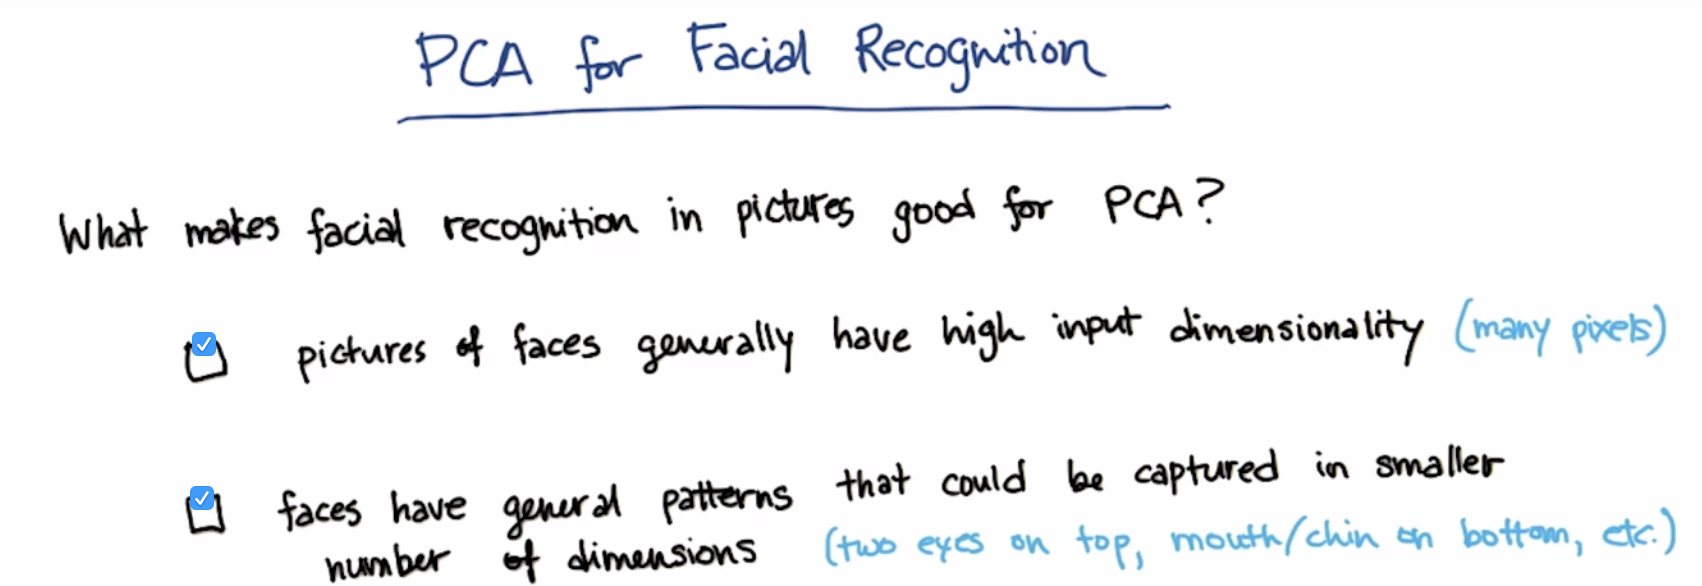 PCA for Facial Recognition
What makes facial recognition in pictures good for PCA?
pictures of faces generally have high input dimensionality (many pixels)
faces have general patterns that could be captured in smaller
number of dimensions (two eyes on top, mouth/chin on bottom, etc.)